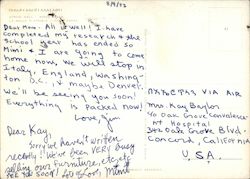 8/9/72
Dear Mom - All is well! I have
completed my research & the
school year has ended so
Mimi & I are going to come
home now. We will stop in
Italy, England, Washing-
ton D.C. & maybe Denver.
We'll be seeing you soon!
Everything is packed now!
Love, Jim
Dear Kay,
Sorry we haven't written
recently! We've been VERY busy
selling our furniture, etc., etc.
See ya soon! Love, Mimi
VIA AIR
Mrs. Kay Baylor
% Oak Grove Convalescent
Hospital
Oak Grove Blvd.
Concord, California
U.S.A.